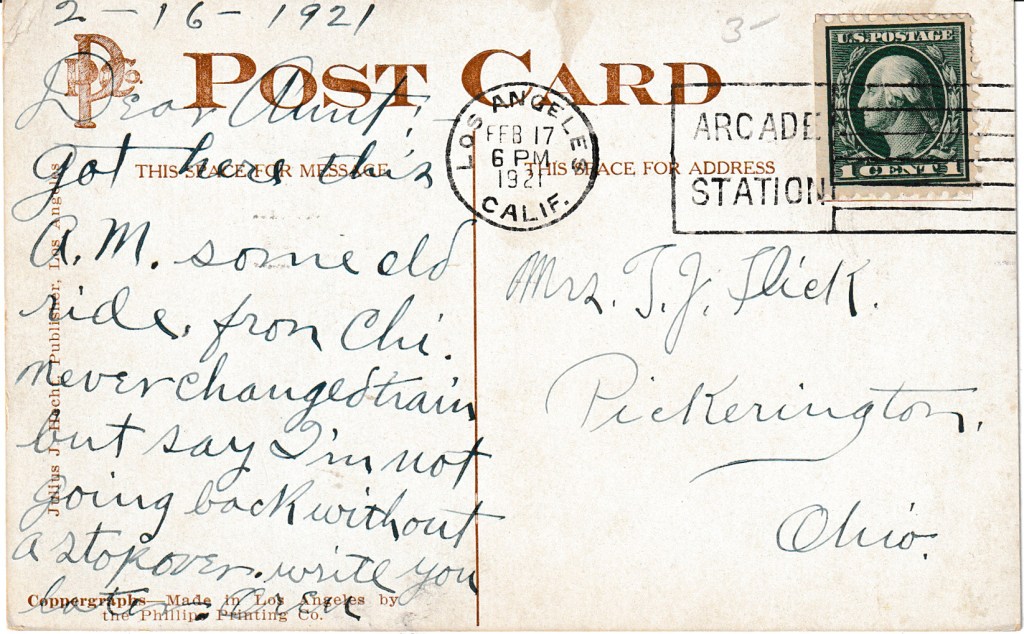 2-16-1921
3-
PPC Co.
POST CARD
Dear Aunt:-
THIS SPACE FOR MESSAGE
THIS SPACE FOR ADDRESS
Got here this
A.M. some old
ride, from Chi.
never changed train
but say I'm not
going back without
a stopover. write you
later
Julius J. Hecht, Publisher, Los Angeles
Coppergraphs—Made in Los Angeles by
the Phillips Printing Co.
LOS ANGELES
FEB 17
6 PM
1921
CALIF.
ARCADE
STATION
U.S. POSTAGE
1 CENT 1
Mrs. T. J. Flick.
Pickerington,
Ohio.